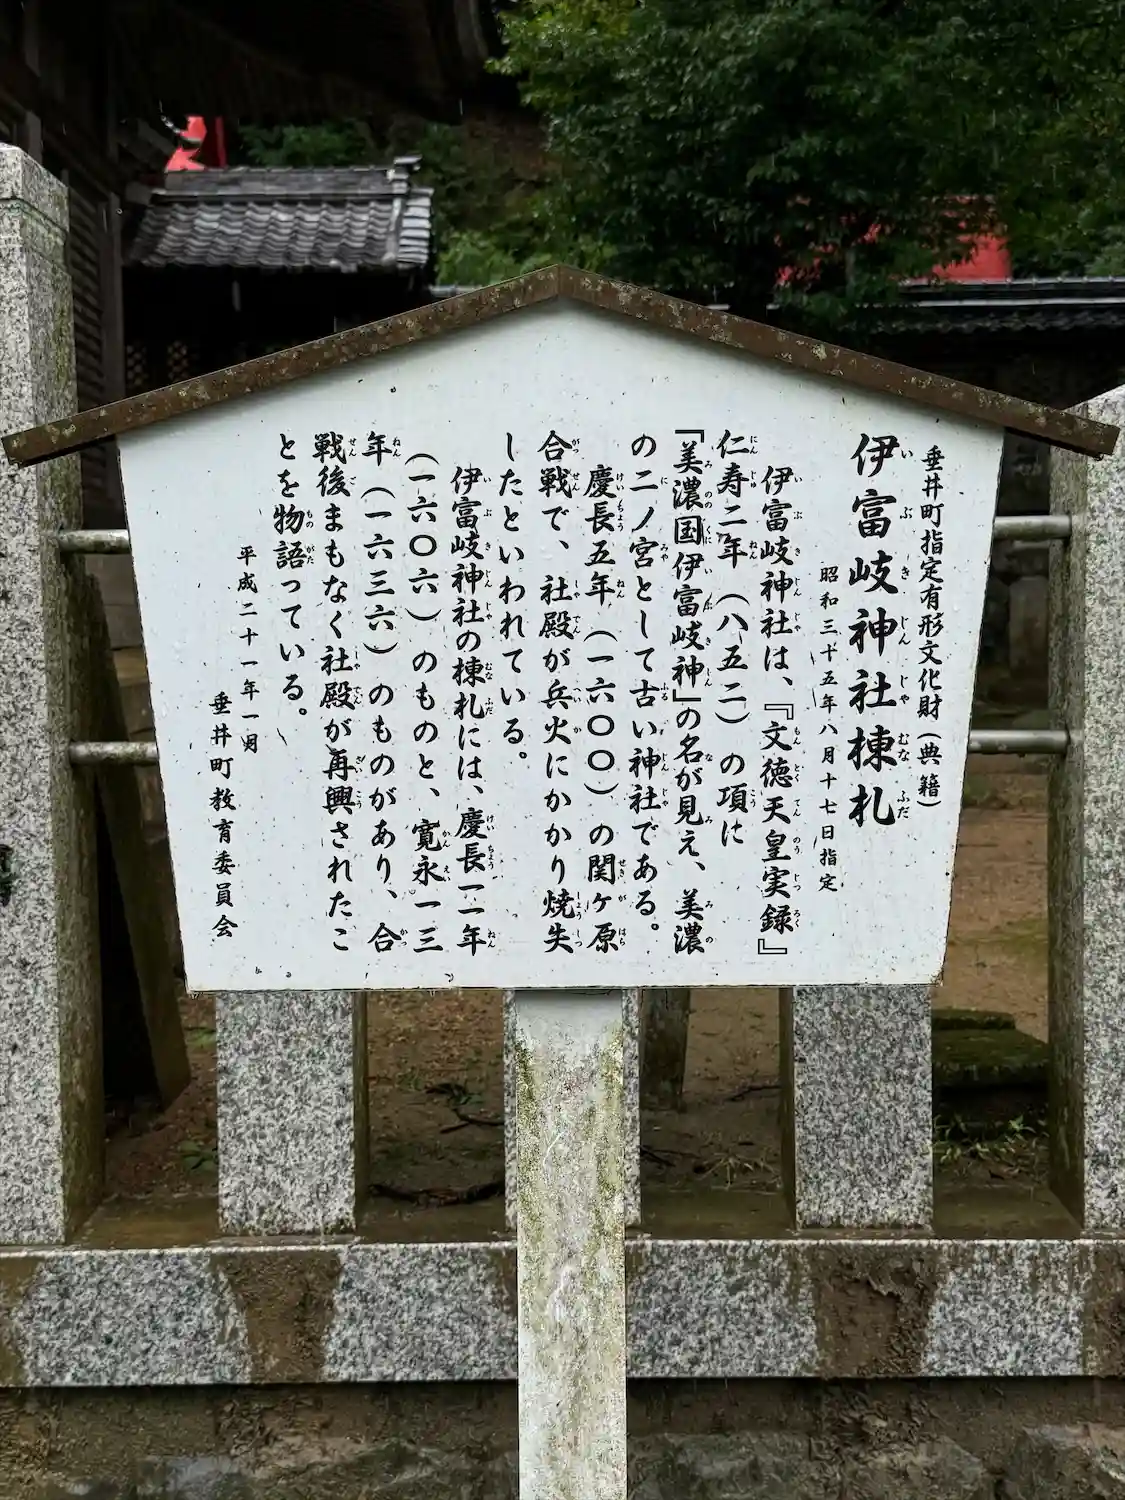 垂井町指定有形文化財(典籍)
伊富岐神社棟札
昭和三十五年八月十七日指定
伊富岐神社は、『文徳天皇実録』
仁寿二年(八五二)の項に
『美濃国伊富岐神』の名が見え、美濃
の二ノ宮として古い神社である。
慶長五年(一六〇〇)の関ヶ原
合戦で、社殿が兵火にかかり焼失
したといわれている。
伊富岐神社の棟札には、慶長一一年
(一六〇六)のものと、寛永一三
年(一六三六)のものがあり、合
戦後まもなく社殿が再興されたこ
とを物語っている。
平成二十一年一月
垂井町教育委員会